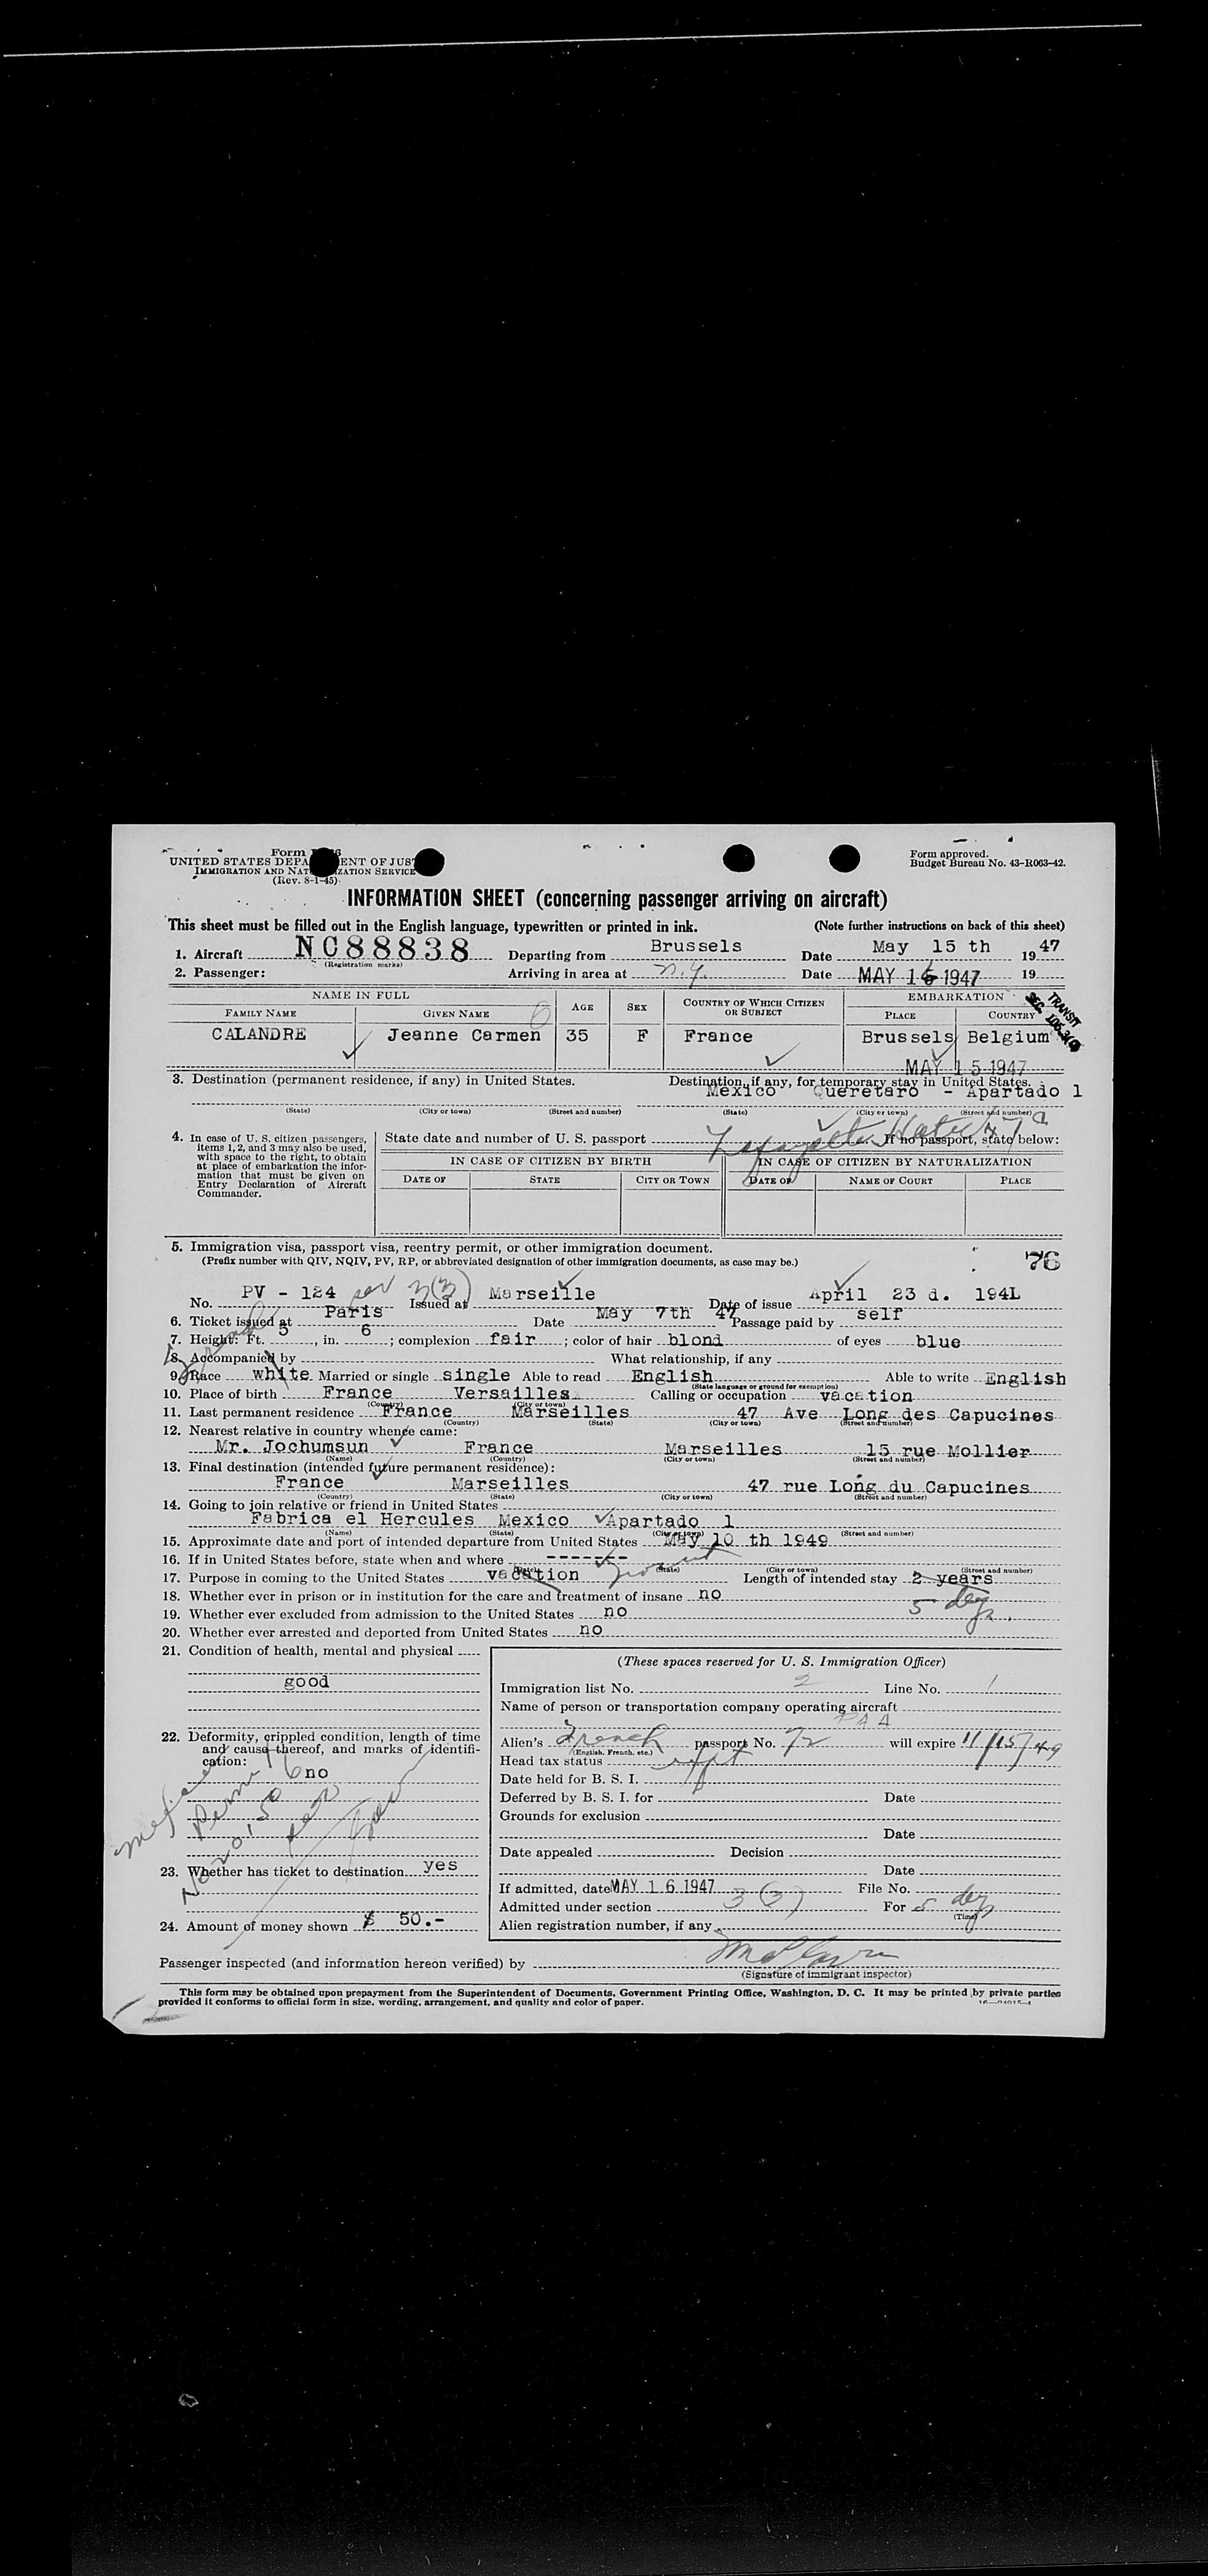 Form
UNITED STATES DEPA ENT OF JUS
IMMIGRATION AND NAT IZATION SERVICE
(Rev. 8-1-45)
Form approved.
Budget Bureau No. 43-R063-42.
INFORMATION SHEET (concerning passenger arriving on aircraft)
This sheet must be filled out in the English language, typewritten or printed in ink. (Note further instructions on back of this sheet)
1. Aircraft NC88838 Departing from Brussels Date May 15 th 1947
(Registration marks)
2. Passenger: Arriving in area at n.y. Date MAY 16 1947 19
NAME IN FULL AGE SEX COUNTRY OF WHICH CITIZEN OR SUBJECT EMBARKATION
FAMILY NAME GIVEN NAME PLACE COUNTRY
TRANSIT
SEC.
CALANDRE Jeanne Carmen 35 F France Brussels Belgium
MAY 15 1947
3. Destination (permanent residence, if any) in United States. Destination, if any, for temporary stay in United States.
Mexico Queretaro - Apartado 1
(State) (City or town) (Street and number) (State) (City or town) (Street and number)
4. In case of U. S. citizen passengers, items 1, 2, and 3 may also be used, with space to the right, to obtain at place of embarkation the information that must be given on Entry Declaration of Aircraft Commander.
State date and number of U. S. passport If no passport, state below:
Lafayette Hotel
IN CASE OF CITIZEN BY BIRTH IN CASE OF CITIZEN BY NATURALIZATION
DATE OF STATE CITY OR TOWN DATE OF NAME OF COURT PLACE
5. Immigration visa, passport visa, reentry permit, or other immigration document.
(Prefix number with QIV, NQIV, PV, RP, or abbreviated designation of other immigration documents, as case may be.)
76
No. PV - 124 3(3) Issued at Marseille Date of issue April 23 d. 194L
6. Ticket issued at Paris Date May 7th 47 Passage paid by self
7. Height: Ft. 5, in. 6; complexion fair; color of hair blond of eyes blue
8. Accompanied by What relationship, if any
9. Race white Married or single single Able to read English Able to write English
(State language or ground for exemption)
10. Place of birth France Versailles Calling or occupation vacation
(Country) (City or town)
11. Last permanent residence France Marseilles 47 Ave Long des Capucines
(Country) (State) (City or town) (Street and number)
12. Nearest relative in country whence came:
Mr. Jochumsun France Marseilles 15 rue Mollier
(Name) (Country) (City or town) (Street and number)
13. Final destination (intended future permanent residence):
France Marseilles 47 rue Long du Capucines
(Country) (State) (City or town) (Street and number)
14. Going to join relative or friend in United States
Fabrica el Hercules Mexico Apartado 1
(Name) (State) (City or town) (Street and number)
15. Approximate date and port of intended departure from United States May 10 th 1949
16. If in United States before, state when and where -------
(Date) (State) (City or town) (Street and number)
17. Purpose in coming to the United States vacation Length of intended stay 2 years
5 days
18. Whether ever in prison or in institution for the care and treatment of insane no
19. Whether ever excluded from admission to the United States no
20. Whether ever arrested and deported from United States no
21. Condition of health, mental and physical
good
22. Deformity, crippled condition, length of time and cause thereof, and marks of identification:
no
23. Whether has ticket to destination yes
24. Amount of money shown $ 50.-
(These spaces reserved for U. S. Immigration Officer)
Immigration list No. 2 Line No. 1
Name of person or transportation company operating aircraft
PAA
Alien's French passport No. 72 will expire 11/15/49
(English, French, etc.)
Head tax status
Date held for B. S. I.
Deferred by B. S. I. for Date
Grounds for exclusion
Date
Date appealed Decision
Date
If admitted, date MAY 16 1947 File No.
Admitted under section 3(3) For 5 days
(Time)
Alien registration number, if any
Passenger inspected (and information hereon verified) by
(Signature of immigrant inspector)
This form may be obtained upon prepayment from the Superintendent of Documents, Government Printing Office, Washington, D. C. It may be printed by private parties
provided it conforms to official form in size, wording, arrangement, and quality and color of paper.